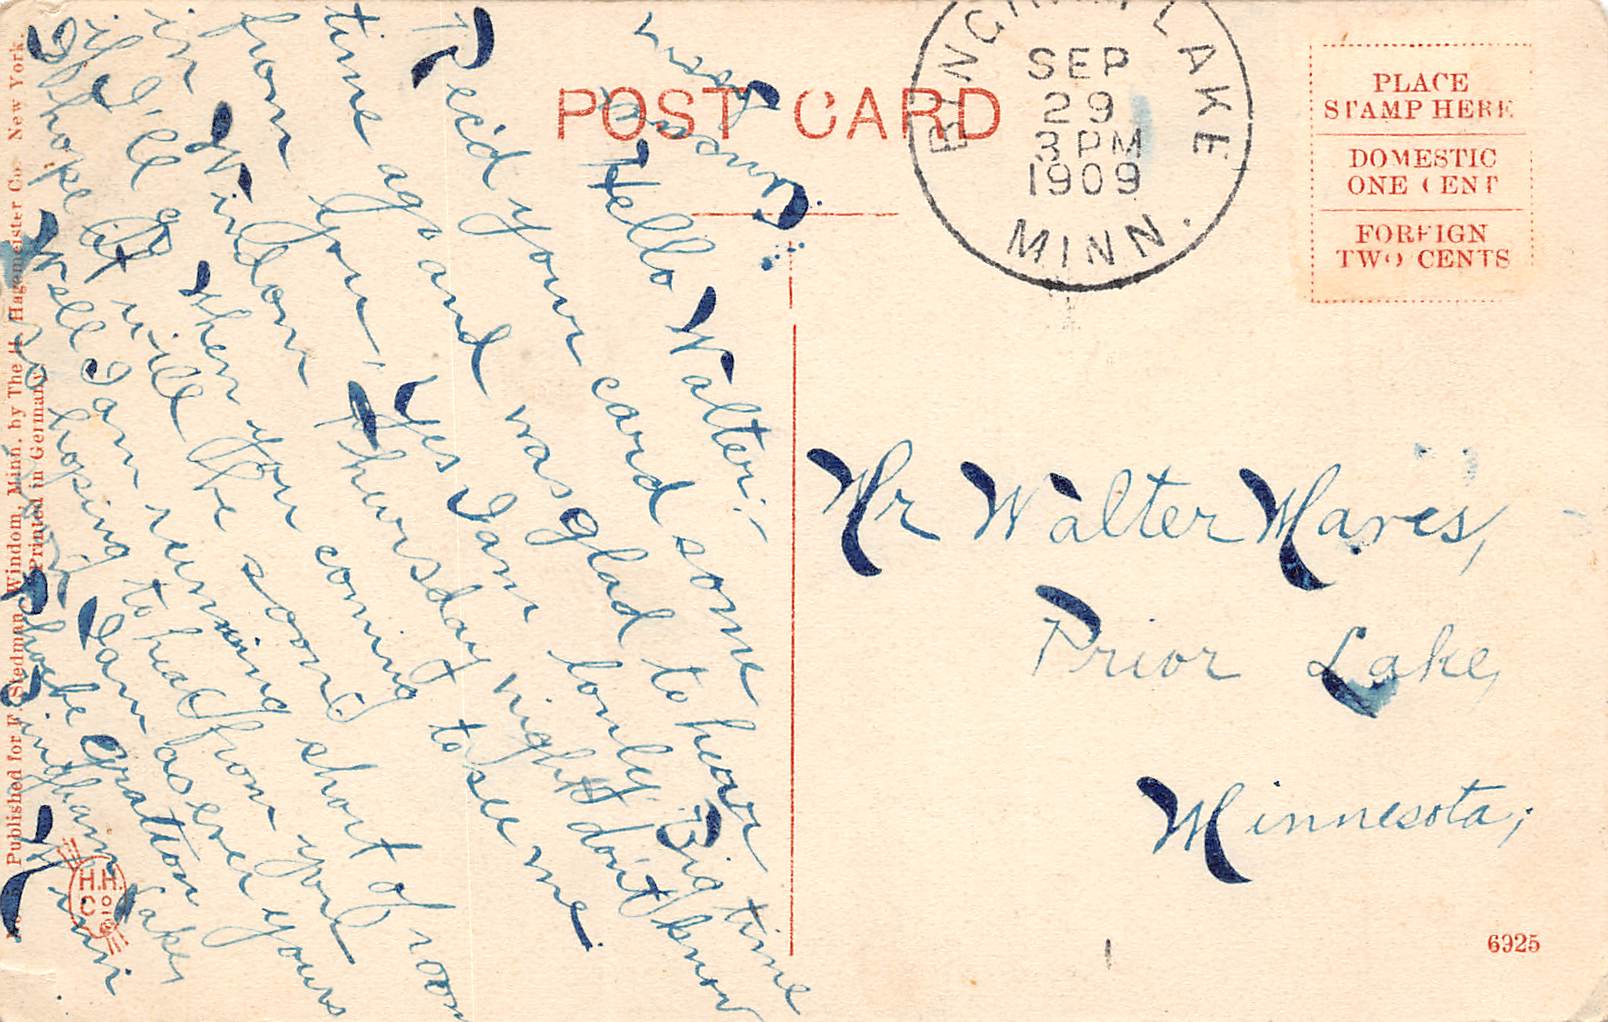 POST CARD
BINGHAM LAKE
SEP
29
3 PM
1909
MINN.
PLACE
STAMP HERE
DOMESTIC
ONE CENT
FOREIGN
TWO CENTS
Hello Walter:
Rec'd your card some
time ago and was glad to hear
from you. Yes I am lonly. Big time
in Windom Thursday night don't know
if I'll go. When you coming to see me
I hope it will be soon
Well I am running short of room
so hoping to hear from you
I am as ever yours
Phoebe Gratton
Bingham Lake,
Minn
Mr Walter Mares,
Prior Lake,
Minnesota;
Published for F. Stedman, Windom, Minn. by The H. Hagemeister Co. New York.
Printed in Germany
H.H.
Co
6925